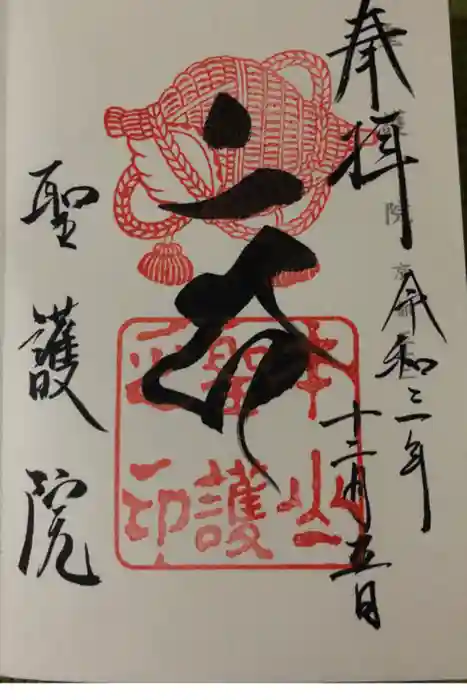 奉拝
令和三年
十二月五日
本山
聖護
印
聖護院